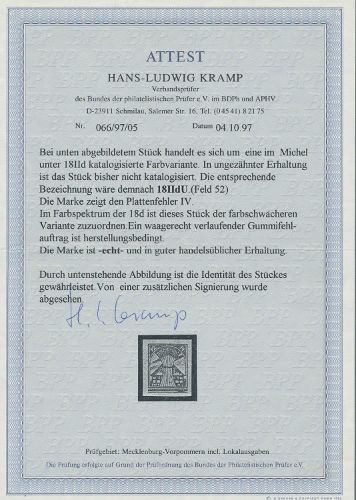 ATTEST
HANS-LUDWIG KRAMP
Verbandsprüfer
des Bundes der philatelistischen Prüfer e.V. im BDPh und APHV
D-23911 Schmilau, Salemer Str. 16, Tel. (0 45 41) 8 21 75
Nr. 066/97/05 Datum 04.10.97
Bei unten abgebildetem Stück handelt es sich um eine im Michel
unter 18IId katalogisierte Farbvariante. In ungezähnter Erhaltung
ist das Stück bisher nicht katalogisiert. Die entsprechende
Bezeichnung wäre demnach 18IIdU.(Feld 52)
Die Marke zeigt den Plattenfehler IV.
Im Farbspektrum der 18d ist dieses Stück der farbschwächeren
Variante zuzuordnen.Ein waagerecht verlaufender Gummifehl-
auftrag ist herstellungsbedingt.
Die Marke ist -echt- und in guter handelsüblicher Erhaltung.
Durch untenstehende Abbildung ist die Identität des Stückes
gewährleistet.Von einer zusätzlichen Signierung wurde
abgesehen
H. L. Kramp
Prüfgebiet: Mecklenburg-Vorpommern incl. Lokalausgaben
Die Prüfung erfolgte auf Grund der Prüfordnung des Bundes der Philatelistischen Prüfer e.V.